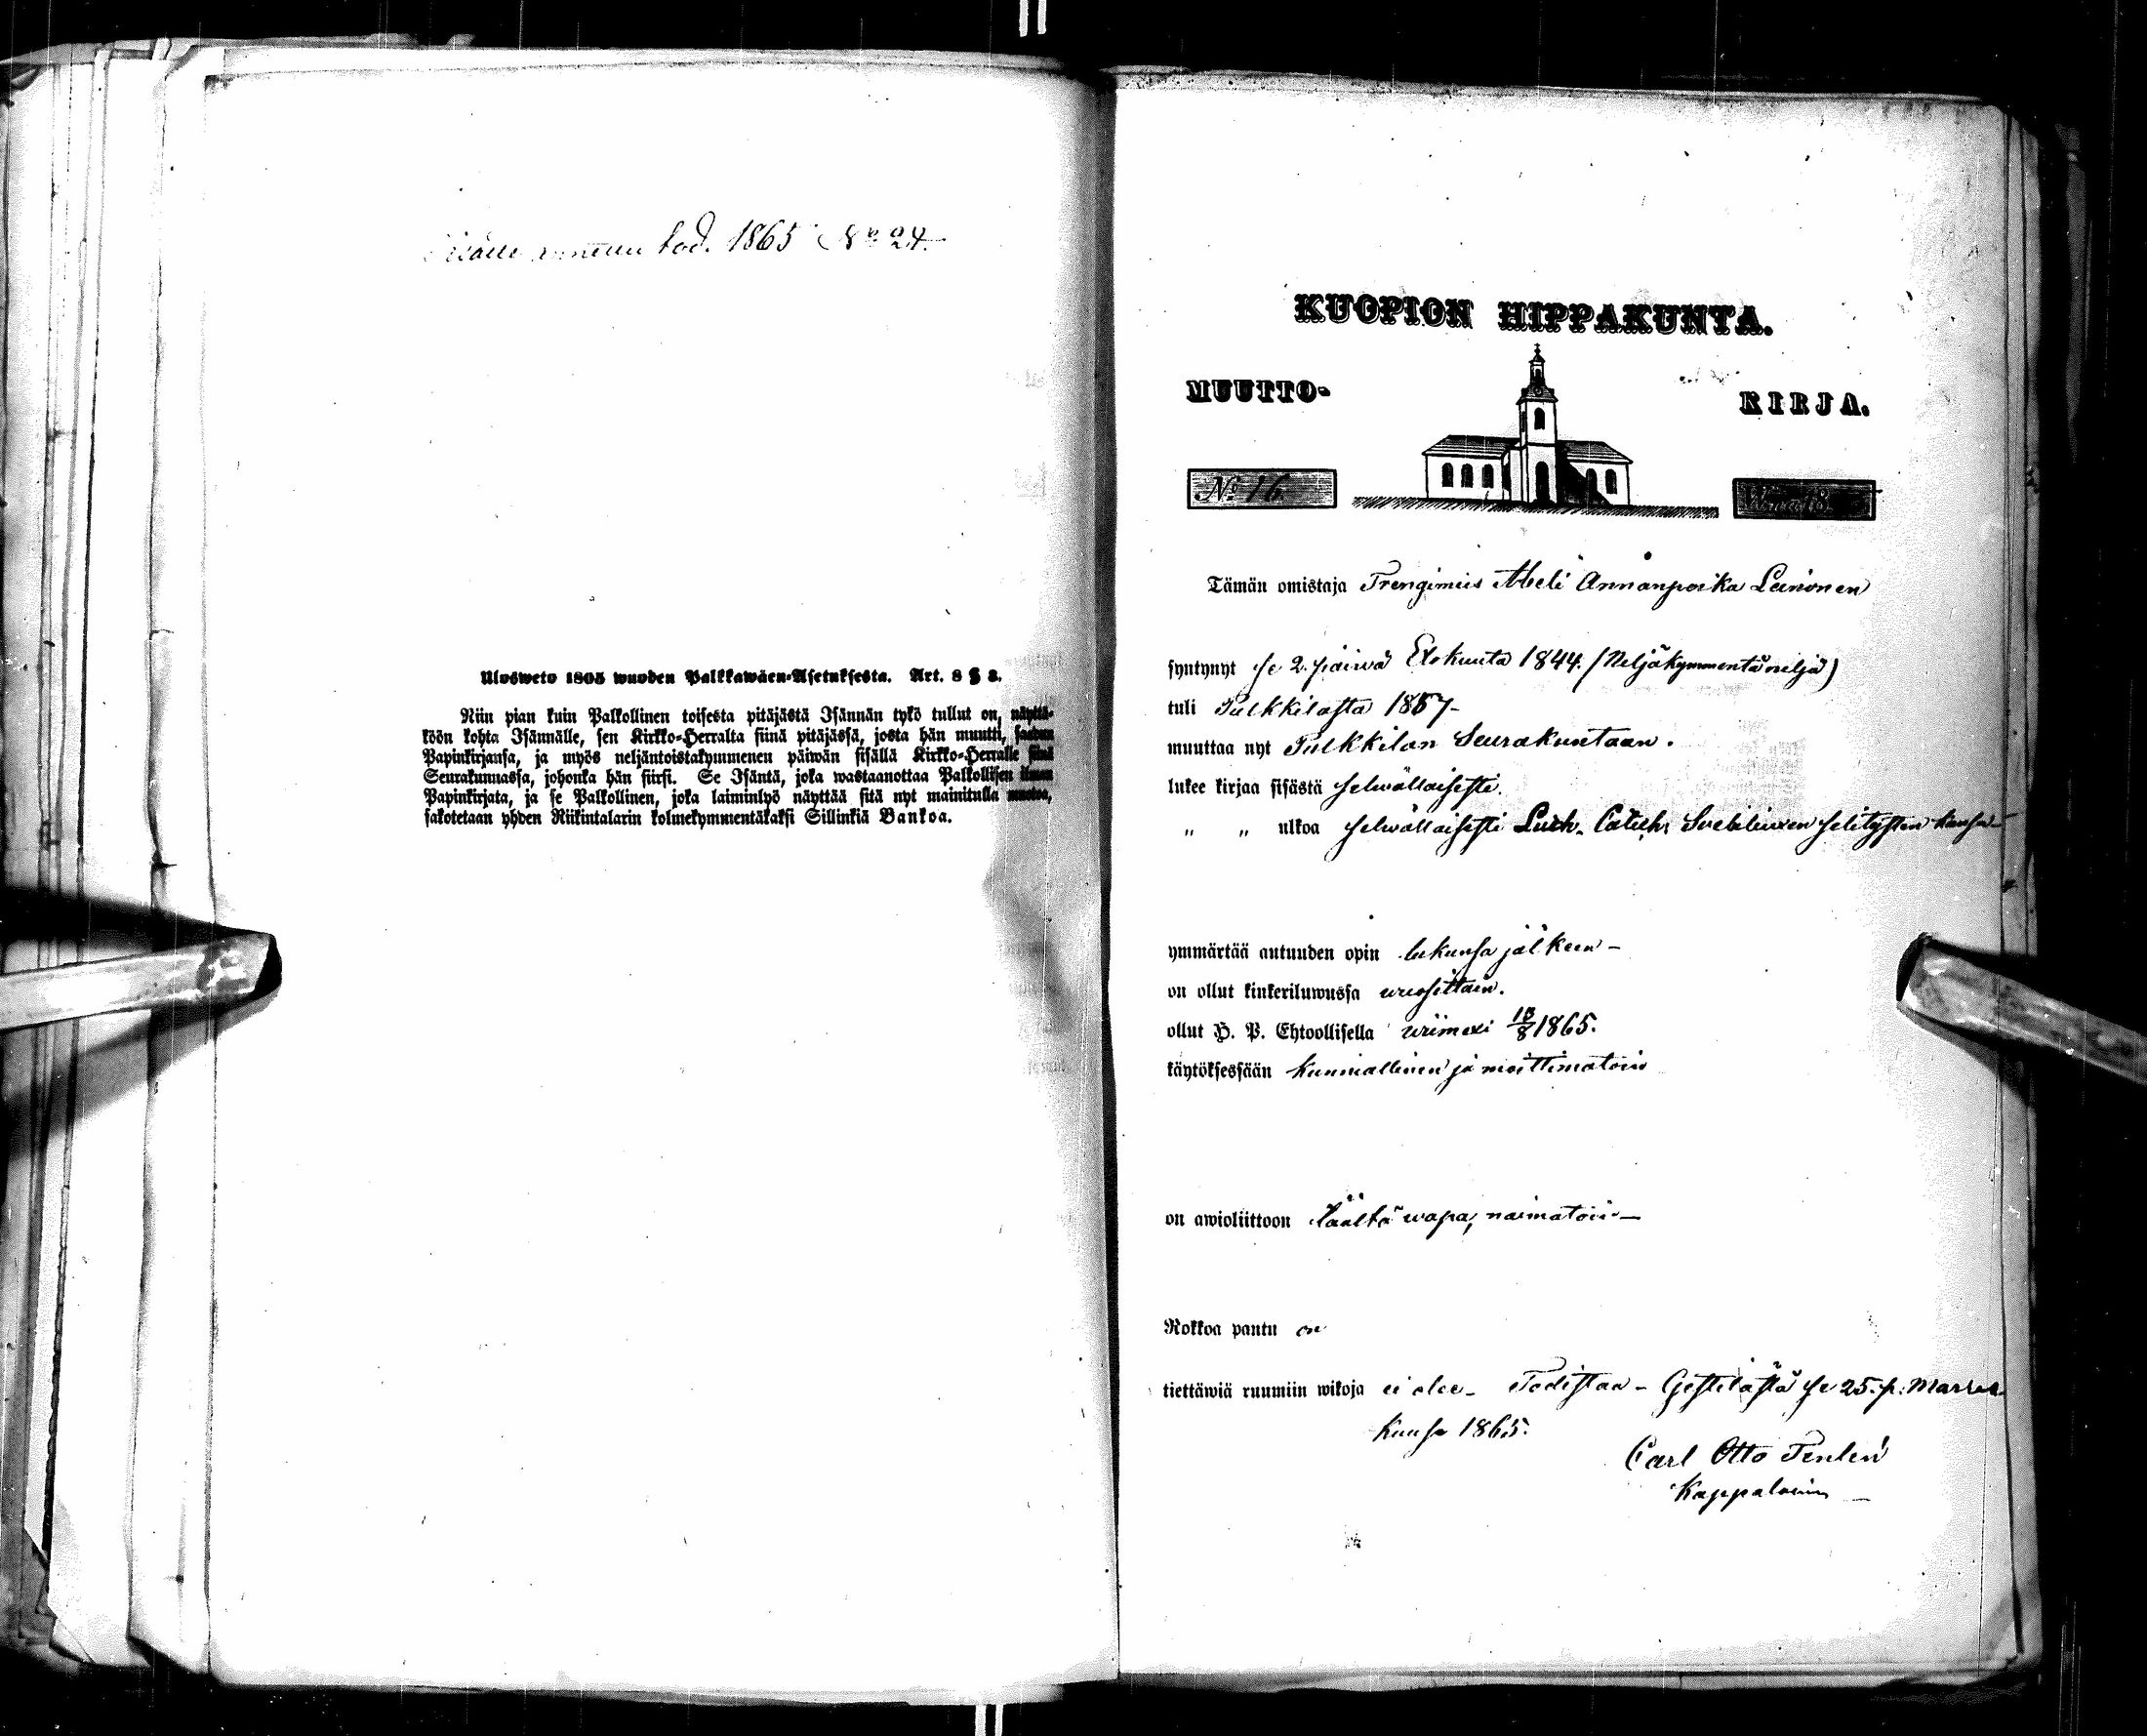 tod. 1865 No 24.
Ulosweto 1805 wuoden Palkkawäen-Asetuksesta. Art. 8 § 3.
Niin pian kuin Palkollinen toisesta pitäjästä Isännän tykö tullut on, näyttä-
köön kohta Isännälle, sen Kirkko-Herralta siinä pitäjässä, josta hän muutti, saadun
Papinkirjansa, ja myös neljäntoistakymmenen päiwän sisällä Kirkko-Herralle siinä
Seurakunnassa, johonka hän siirsi. Se Isäntä, joka wastaanottaa Palkollisen ilman
Papinkirjata, ja se Palkollinen, joka laiminlyö näyttää sitä nyt mainitulla muotoa,
sakotetaan yhden Riikintalarin kolmekymmentäkaksi Sillinkiä Bankoa.
KUOPION HIPPAKUNTA.
MUUTTO-
KIRJA.
No 16.
Tämän omistaja Trengimies Abeli Annanpoika Leinonen
syntynyt se 2. päiwä Elokuuta 1844. (Neljäkymmentäneljä)
tuli Pulkkilasta 1857-
muuttaa nyt Pulkkilan Seurakuntaan.
lukee kirjaa sisästä selwällaisesti.
" " ulkoa selwällaisesti Luth. Catech. Svebiliuxen selitysten kansa-
ymmärtää autuuden opin lukunsa jälkeen-
on ollut kinkeriluwussa wuosittain.
ollut H. P. Ehtoollisella wiimexi 13/8 1865.
käytöksessään kunniallinen ja moittimatoin
on awioliittoon täältä wapa, naimatoin-
Rokkoa pantu on
tiettäwiä ruumiin wikoja ei olee- Todistaa- Gestilästä se 25. p. Marras-
kuusa 1865.
Carl Otto
Kappalainen